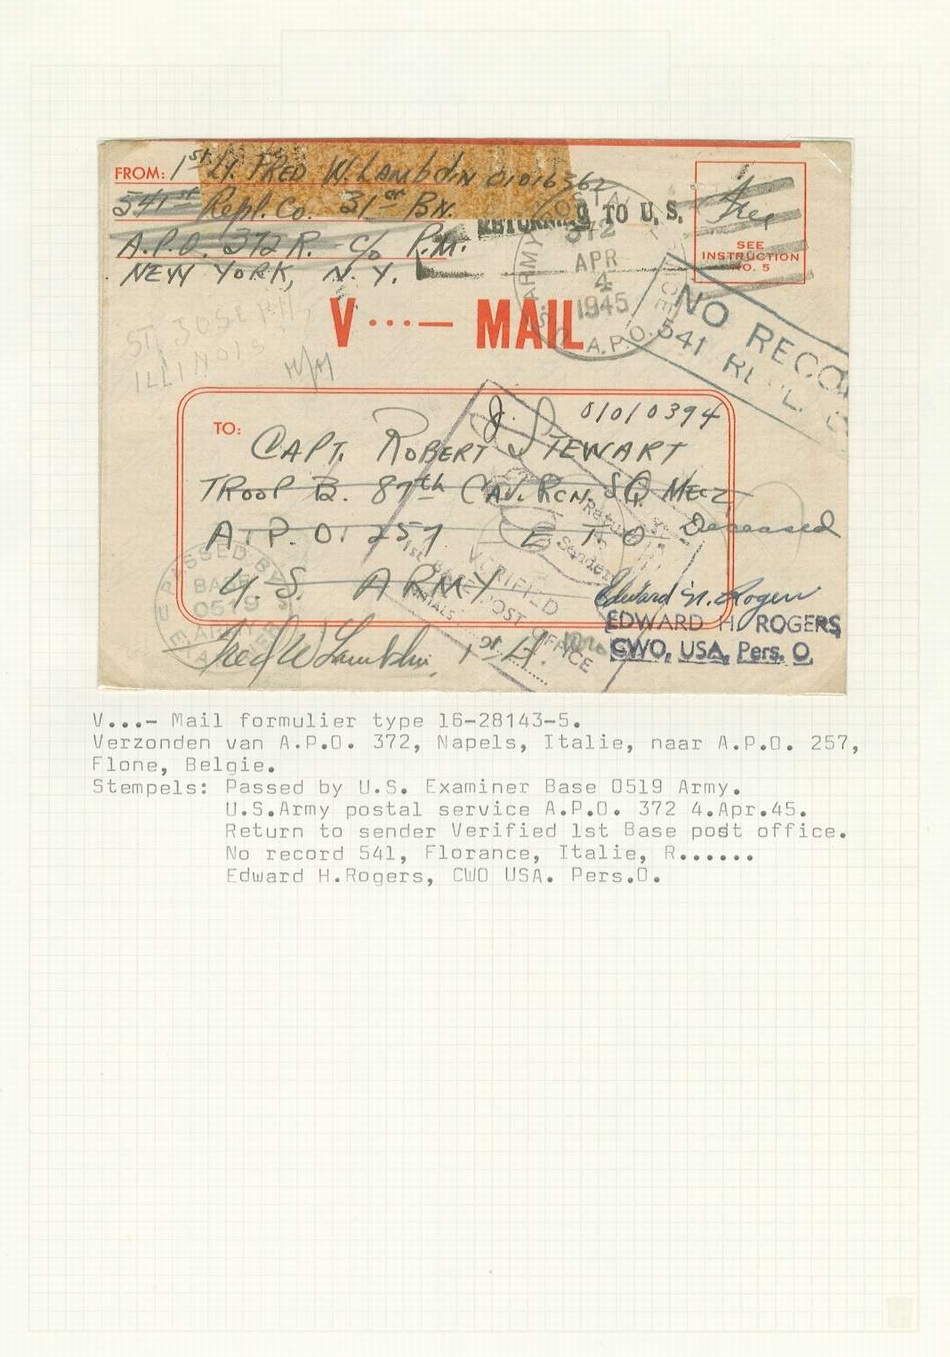 FROM: 1st Lt. FRED W. Lambdin 01016362
541st Repl. Co. 31st BN.
A.P.O. 372 R. c/o P.M.
NEW YORK, N.Y.
RETURNING TO U.S.
Free
SEE
INSTRUCTION
NO. 5
U.S. ARMY POSTAL SERVICE A.P.O.
372
APR
4
1945
NO RECO
541 REPL. C
ST. JOSEPH,
ILLINOIS
V...— MAIL
TO:
J. 01010394
CAPT. ROBERT STEWART
TROOP B. 87th CAV. RCN. SQ MECZ
Deceased
A.P.O. 257 E.T.O.
U.S. ARMY
Return
to
Sender
VERIFIED
1st BASE POST OFFICE
INITIALS
PASSED BY
BASE
0519
ARMY
Edward H. Rogers
EDWARD H. ROGERS
CWO, USA, Pers. O.
Fred W Lambdin, 1st Lt.
V...- Mail formulier type 16-28143-5.
Verzonden van A.P.O. 372, Napels, Italie, naar A.P.O. 257,
Flone, Belgie.
Stempels: Passed by U.S. Examiner Base 0519 Army.
U.S.Army postal service A.P.O. 372 4.Apr.45.
Return to sender Verified 1st Base post office.
No record 541, Florance, Italie, R......
Edward H.Rogers, CWO USA. Pers.O.